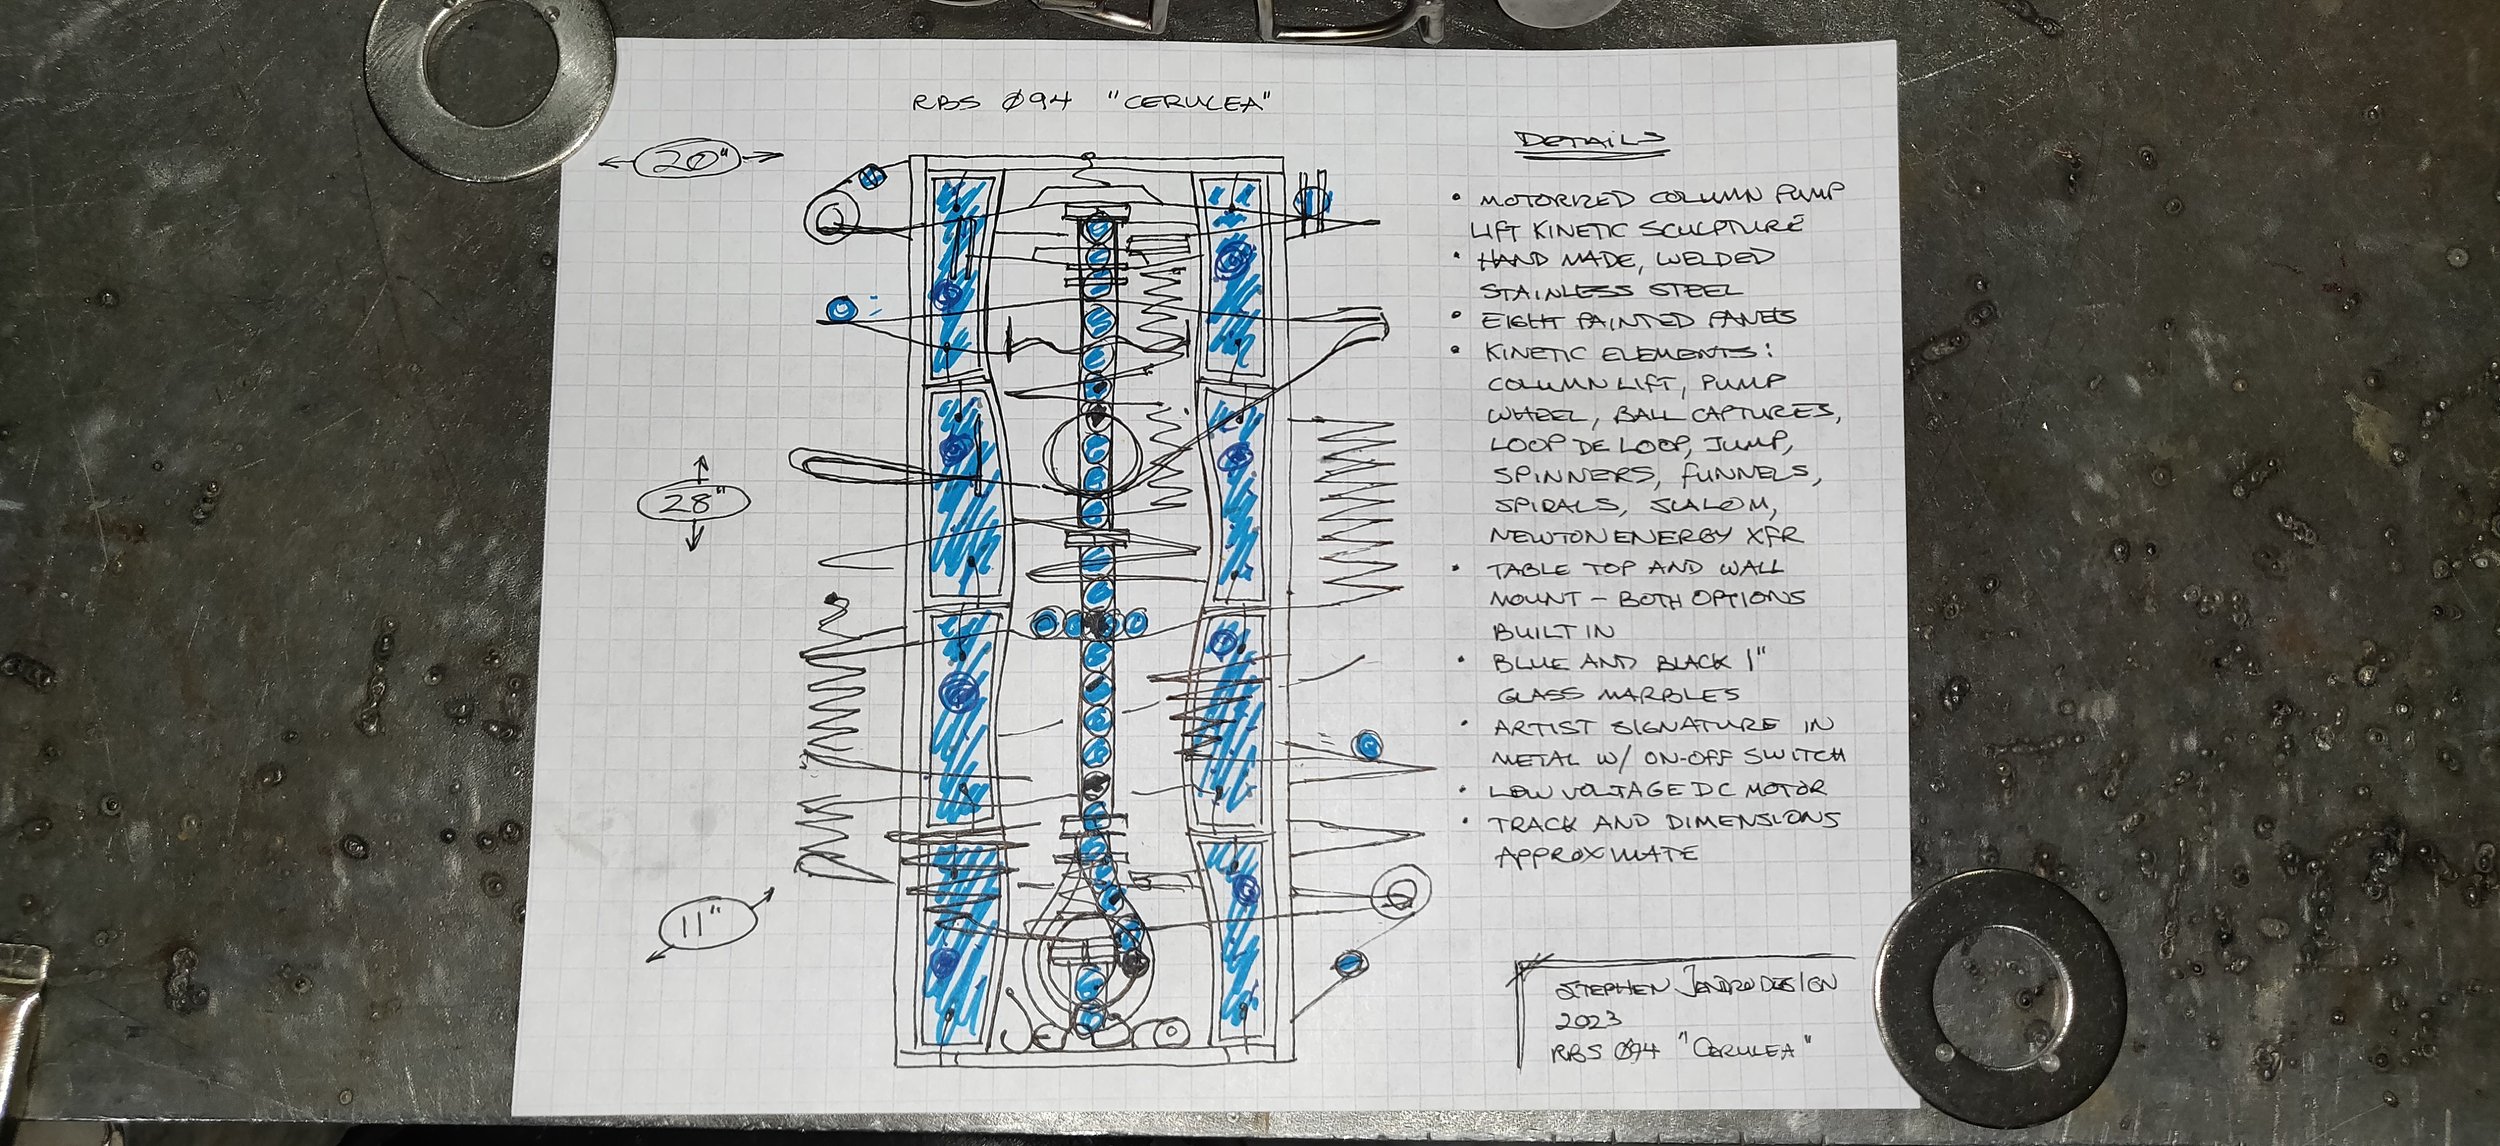 RBS Ø94 "CERULEA"
20"
28"
11"
DETAILS
• MOTORIZED COLUMN PUMP
LIFT KINETIC SCULPTURE
• HAND MADE, WELDED
STAINLESS STEEL
• EIGHT PAINTED PANELS
• KINETIC ELEMENTS:
COLUMN LIFT, PUMP
WHEEL, BALL CAPTURES,
LOOP DE LOOP, JUMP,
SPINNERS, FUNNELS,
SPIRALS, SLALOM,
NEWTON ENERGY XFR
• TABLE TOP AND WALL
MOUNT – BOTH OPTIONS
BUILT IN
• BLUE AND BLACK 1"
GLASS MARBLES
• ARTIST SIGNATURE IN
METAL W/ ON-OFF SWITCH
• LOW VOLTAGE DC MOTOR
• TRACK AND DIMENSIONS
APPROXIMATE
STEPHEN JENDRO DESIGN
2023
RBS Ø94 "CERULEA"